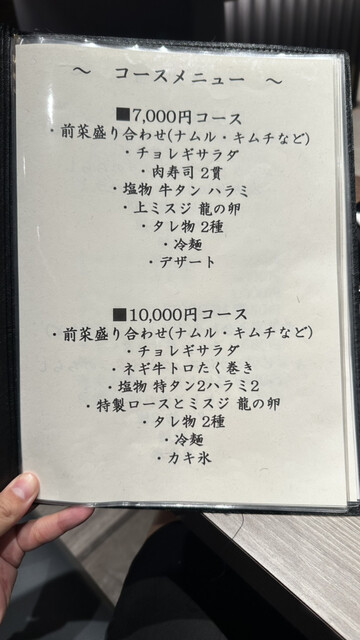 ～ コースメニュー ～
■7,000円コース
・前菜盛り合わせ(ナムル・キムチなど)
・チョレギサラダ
・肉寿司 2貫
・塩物 牛タン ハラミ
・上ミスジ 龍の卵
・タレ物 2種
・冷麺
・デザート
■10,000円コース
・前菜盛り合わせ(ナムル・キムチなど)
・チョレギサラダ
・ネギ牛トロたく巻き
・塩物 特タン2ハラミ2
・特製ロースとミスジ 龍の卵
・タレ物 2種
・冷麺
・カキ氷